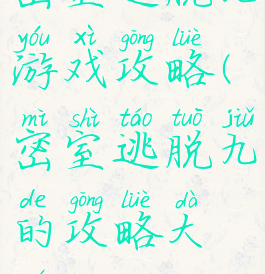 yóu xì gōng lüè
游戏攻略(
mì shì táo tuō jiǔ
密室逃脱九
de gōng lüè dà
的攻略大